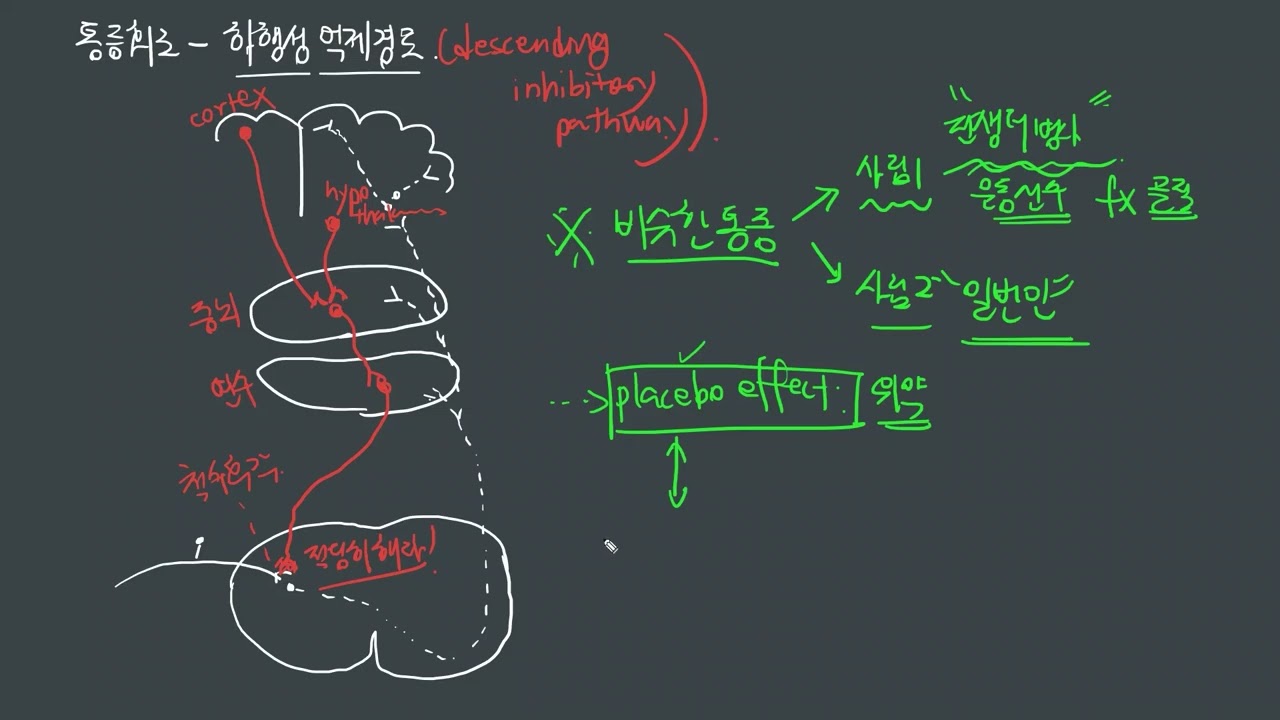 통증회로 - 하행성 억제경로. (descending
inhibitory
pathway)
cortex
hypo
thal
중뇌
연수
척수후각
적당히해라!
※ 비슷한 통증
사람1
" 관생디 병사 "
운동선수 fx 골절
사람2 "일반인"
placebo effect. 위약